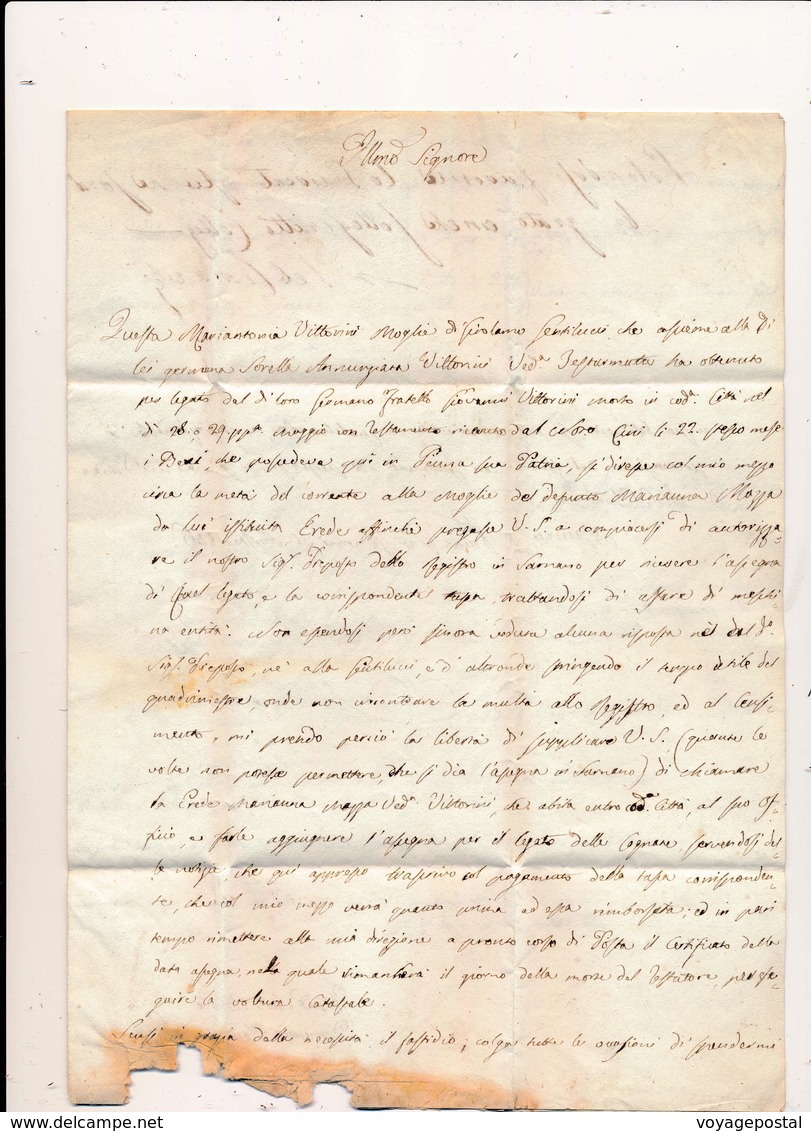 Illmo Signore
Questa Mariantonia Vittorini Moglie di Girolamo Gentilucci, che assieme alla di
lei germana Sorella Annunziata Vittorini Ved.a ha ottenuto
per legato dal di loro Germano Fratello Giovanni Vittorini morto in cod.a Città nel
di 28 o 29 pp.to Maggio con Testamento dal Cini li 22. stesso mese
i Beni, che possedeva qui in Penna sua Patria, si diresse col mio mezzo
circa la metà del corrente alla Moglie del defunto Marianna Mazza
da lui istituita Erede affinchè pregasse V. S. a compiacersi di autorizza-
re il nostro Sig.r Preposto dello Registro in Sarnano per ricevere l'assegna
di quel legato, e la corrispondente tassa, trattandosi di affare di meschi-
na entità. Non essendosi però sinora veduta alcuna risposta nè dal d.o
Sig.r Preposto, nè alla Gentilucci, e d'altronde stringendo il tempo utile del
quadrimestre, onde non incontrare la multa allo Registro, ed al Censi-
mento, mi prendo perciò la libertà di supplicare V. S. (quante le
volte non potesse permettere, che si dia l'assegna in Sarnano) di chiamare
la Erede Marianna Mazza Ved.a Vittorini, che abita entro cod.a Città, al suo Of-
ficio, e farle aggiugnere l'assegna per il legato delle Cognate servendosi del-
le notizie, che quì appresso trascrivo col pagamento della tassa corrisponden-
te, che col mio mezzo verrà quanto prima ad essa rimborsata; ed in pari
tempo rimettere alla mia direzione a pronto corso di Posta il Certificato della
data assegna, nella quale rimancherà il giorno della morte del Testatore, per ese-
guire la voltura Catastale.
Scusi in grazia della necessità il fastidio; colga tutte le occasioni di spendermi
www.delcampe.net
voyagepostal